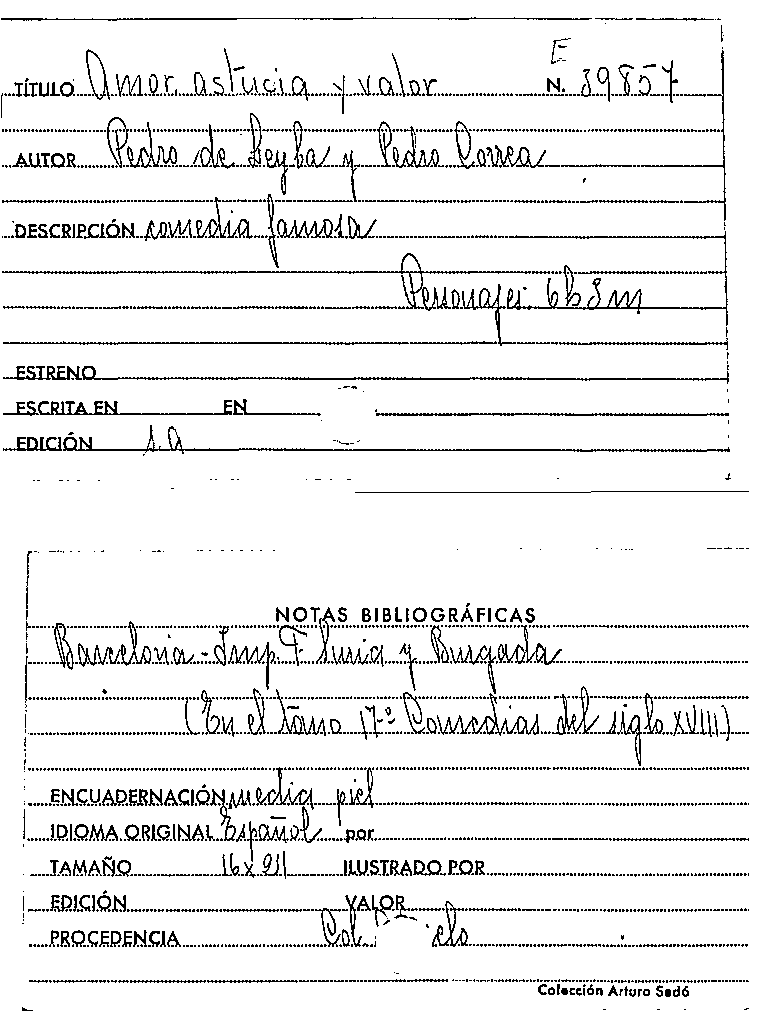 E
TÍTULO Amor, astucia y valor N. 39857
AUTOR Pedro de Leyba y Pedro Correa
DESCRIPCIÓN comedia famosa
Personajes: 6h 3m
ESTRENO
ESCRITA EN EN
EDICIÓN s.a
NOTAS BIBLIOGRÁFICAS
Barcelona - Imp. F. Suria y Burgada
(En el tomo 17º Comedias del siglo XVIII)
ENCUADERNACIÓN media piel
IDIOMA ORIGINAL Español por
TAMAÑO 16x ILUSTRADO POR
EDICIÓN VALOR
PROCEDENCIA Col.
Colección Arturo Sedó